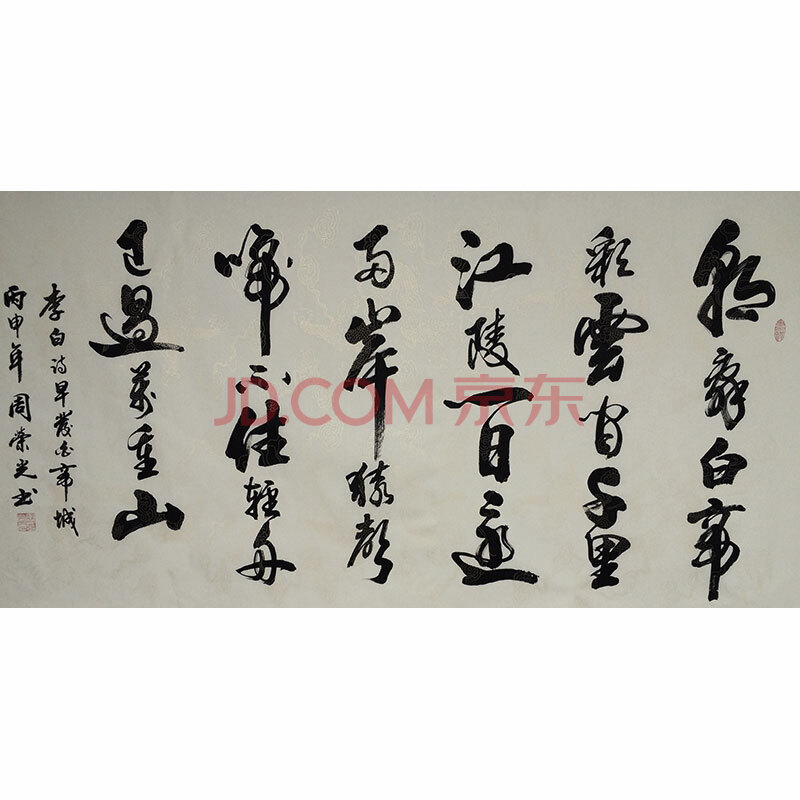 朝辞白帝
彩雲间千里
江陵一日還
两岸猿聲
啼不住輕舟
已過萬重山
李白诗早發白帝城
丙申年周榮光书
JD.COM 京东